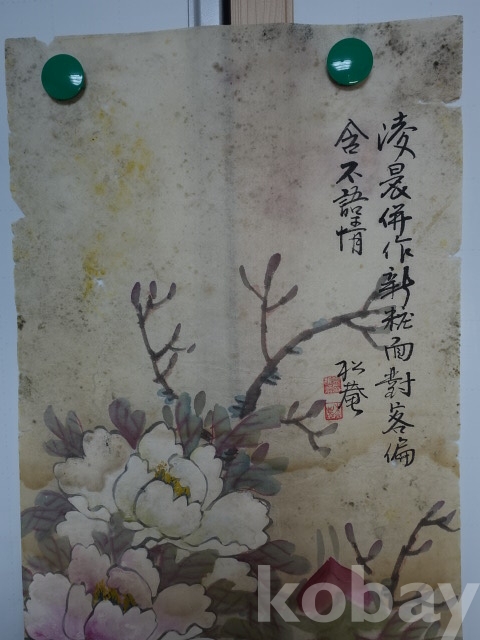 凌晨併作新粧面對客偏
含不語情
松菴
kobay